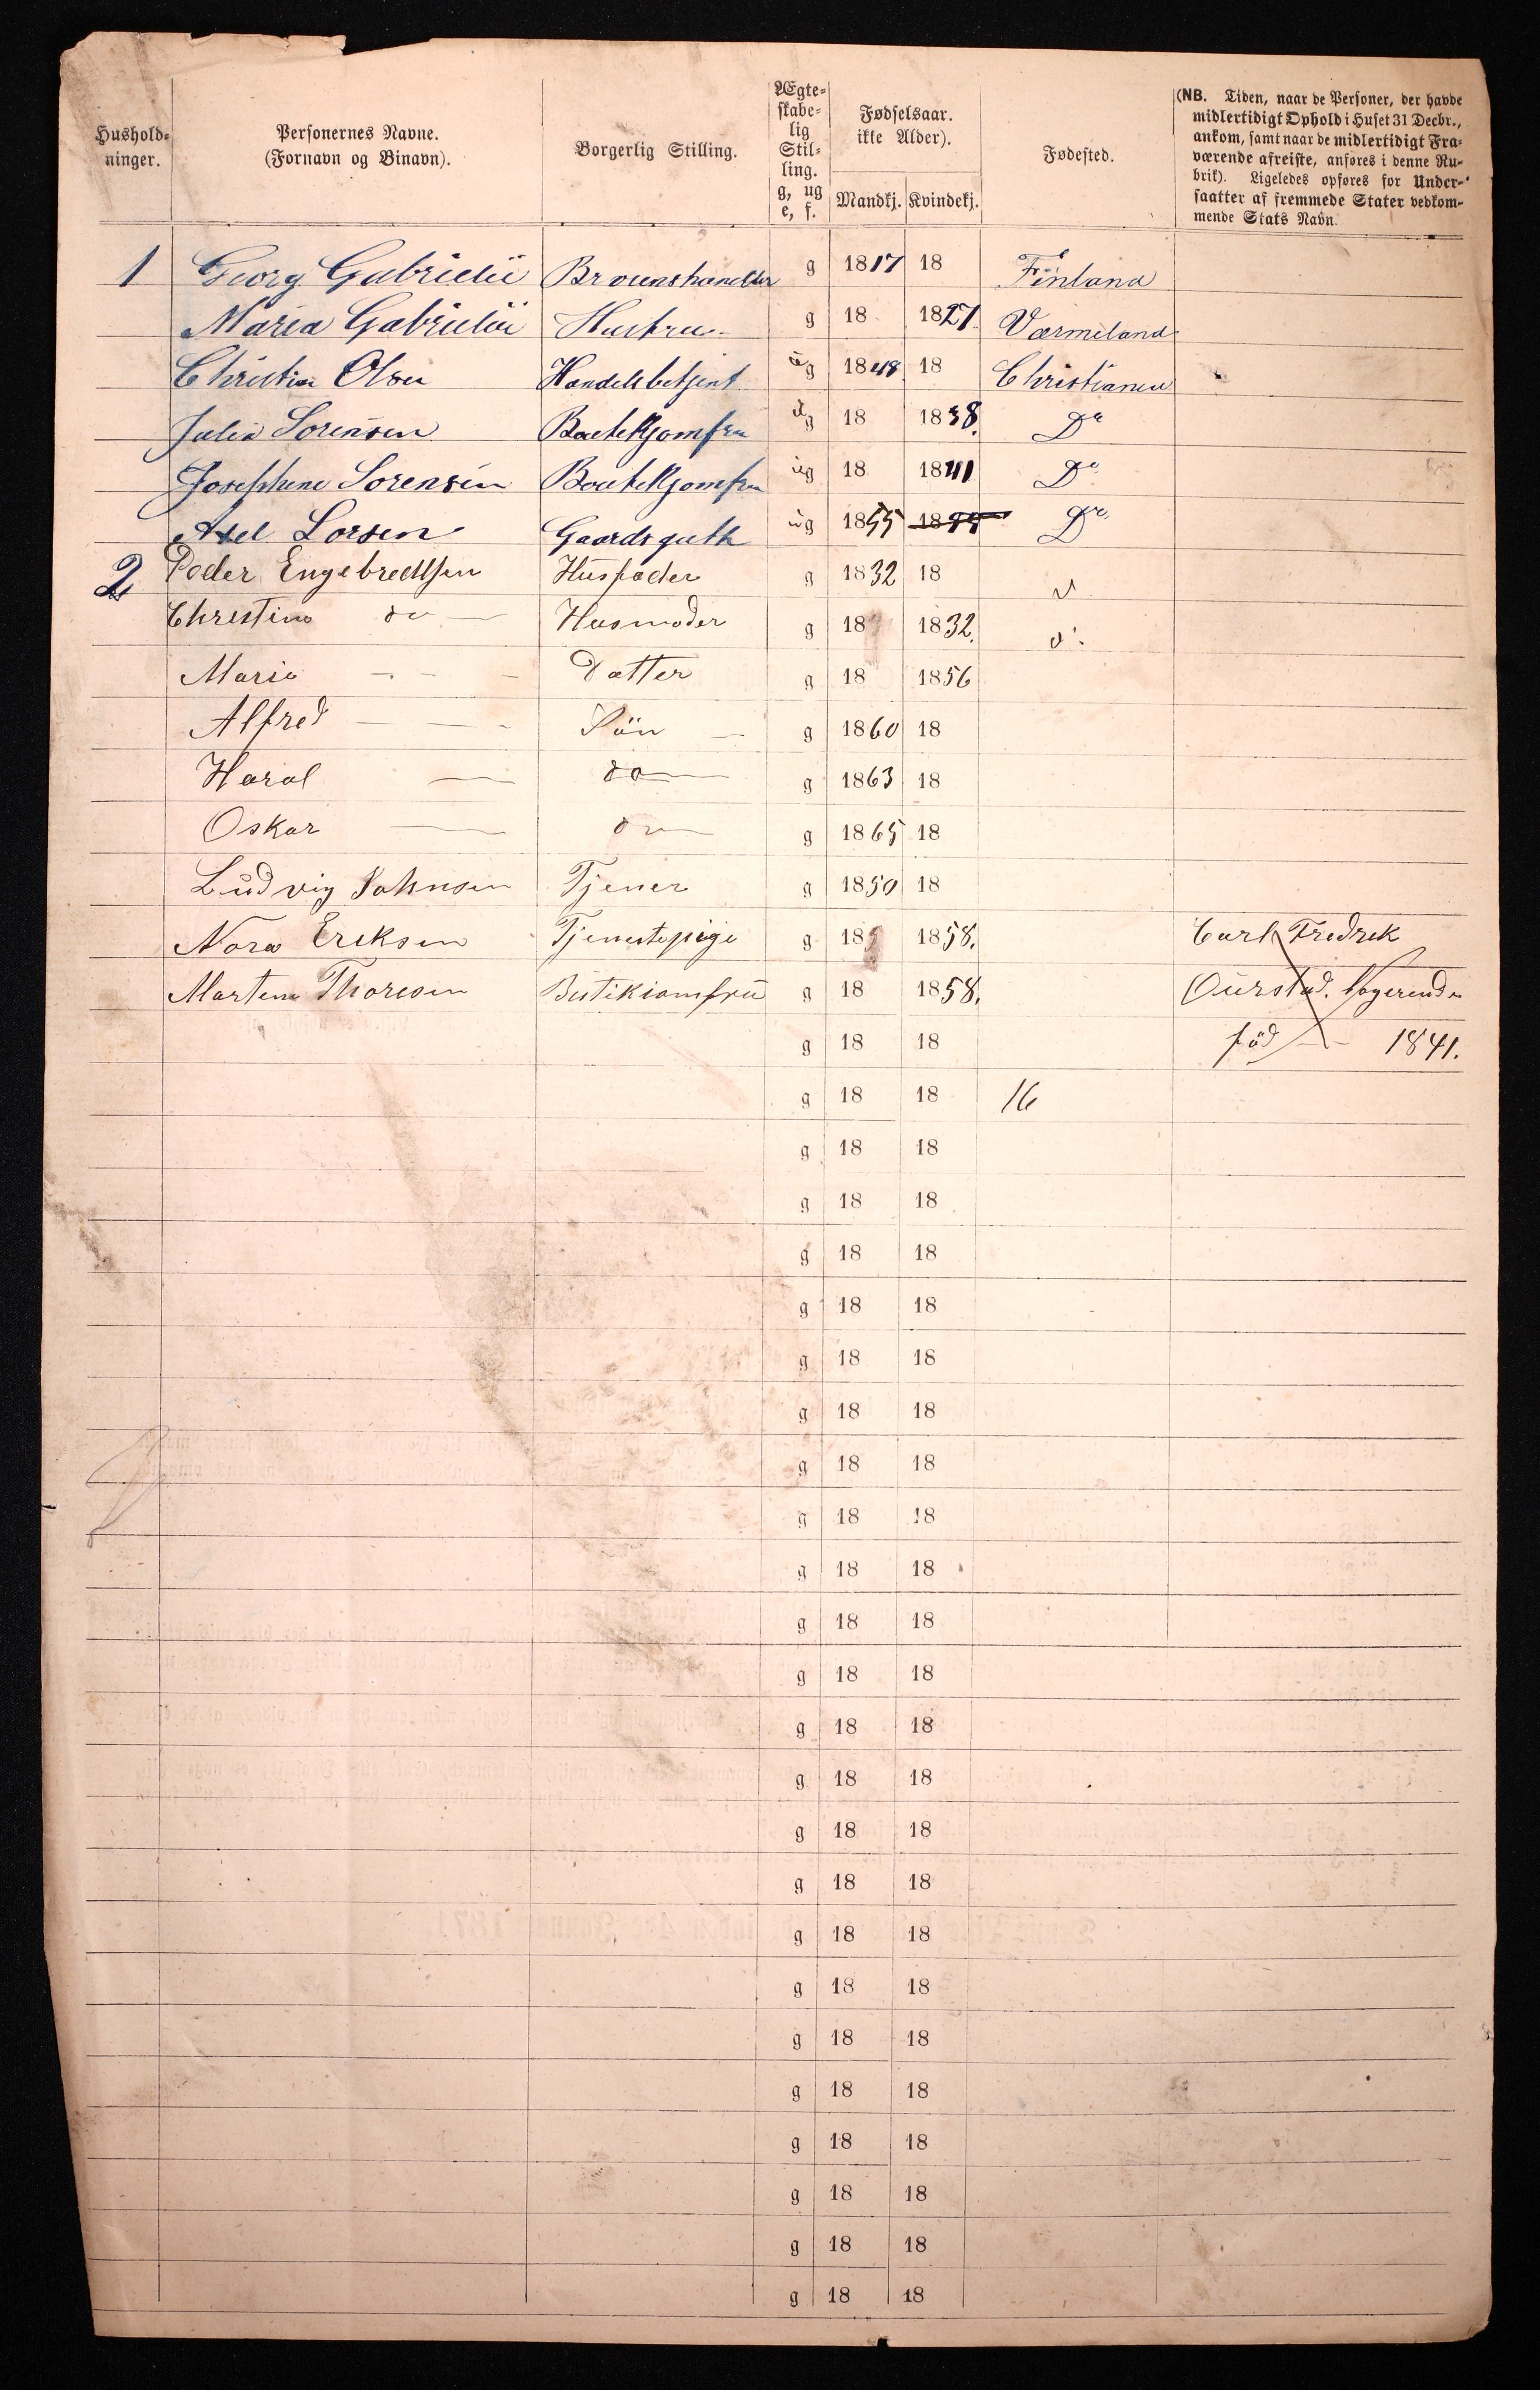 Hushold-
ninger.
Personernes Navne.
(Fornavn og Binavn).
Borgerlig Stilling.
Ægte-
skabe-
lig
Stil-
ling.
g, ug
e, f.
Fødselsaar.
ikke Alder).
Mandkj. Kvindekj.
Fødested.
(NB. Tiden, naar de Personer, der havde
midlertidigt Ophold i Huset 31 Decbr.,
ankom, samt naar de midlertidigt Fra-
værende afreiste, anføres i denne Ru-
brik). Ligeledes opføres for Under-
saatter af fremmede Stater vedkom-
mende Stats Navn.
1 Georg Gabrielii g 1817 18 Finland
Maria Gabrielii Hustru g 18 1827. Værmeland
Christian Olsen Handelsbetjent ug 1848 18 Christiania
Julia Sorensen ug 18 1838. Do
Josephine Sorensen ug 18 1841 Do
Axel Lorsen Gaardsguth ug 1855 18 Do
2 Peder Engebrethsen Husfader g 1832 18
Christine do — Husmoder g 18 1832.
Marie - - - Datter g 18 1856
Alfred — — - Sön — g 1860 18
Haral — do — g 1863 18
Oskar — do — g 1865 18
Ludvig Johnsen Tjener g 1850 18
Nora Eriksen Tjenestepige g 18 1858. Carl Fredrek
Martene Thoresen Butikiomfru g 18 1858.
g 18 18 föd — 1841.
g 18 18 16
g 18 18
g 18 18
g 18 18
g 18 18
g 18 18
g 18 18
g 18 18
g 18 18
g 18 18
g 18 18
g 18 18
g 18 18
g 18 18
g 18 18
g 18 18
g 18 18
g 18 18
g 18 18
g 18 18
g 18 18
g 18 18
g 18 18
g 18 18